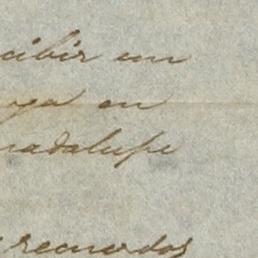 cibir un
ga en
uadalupe
recuerdos